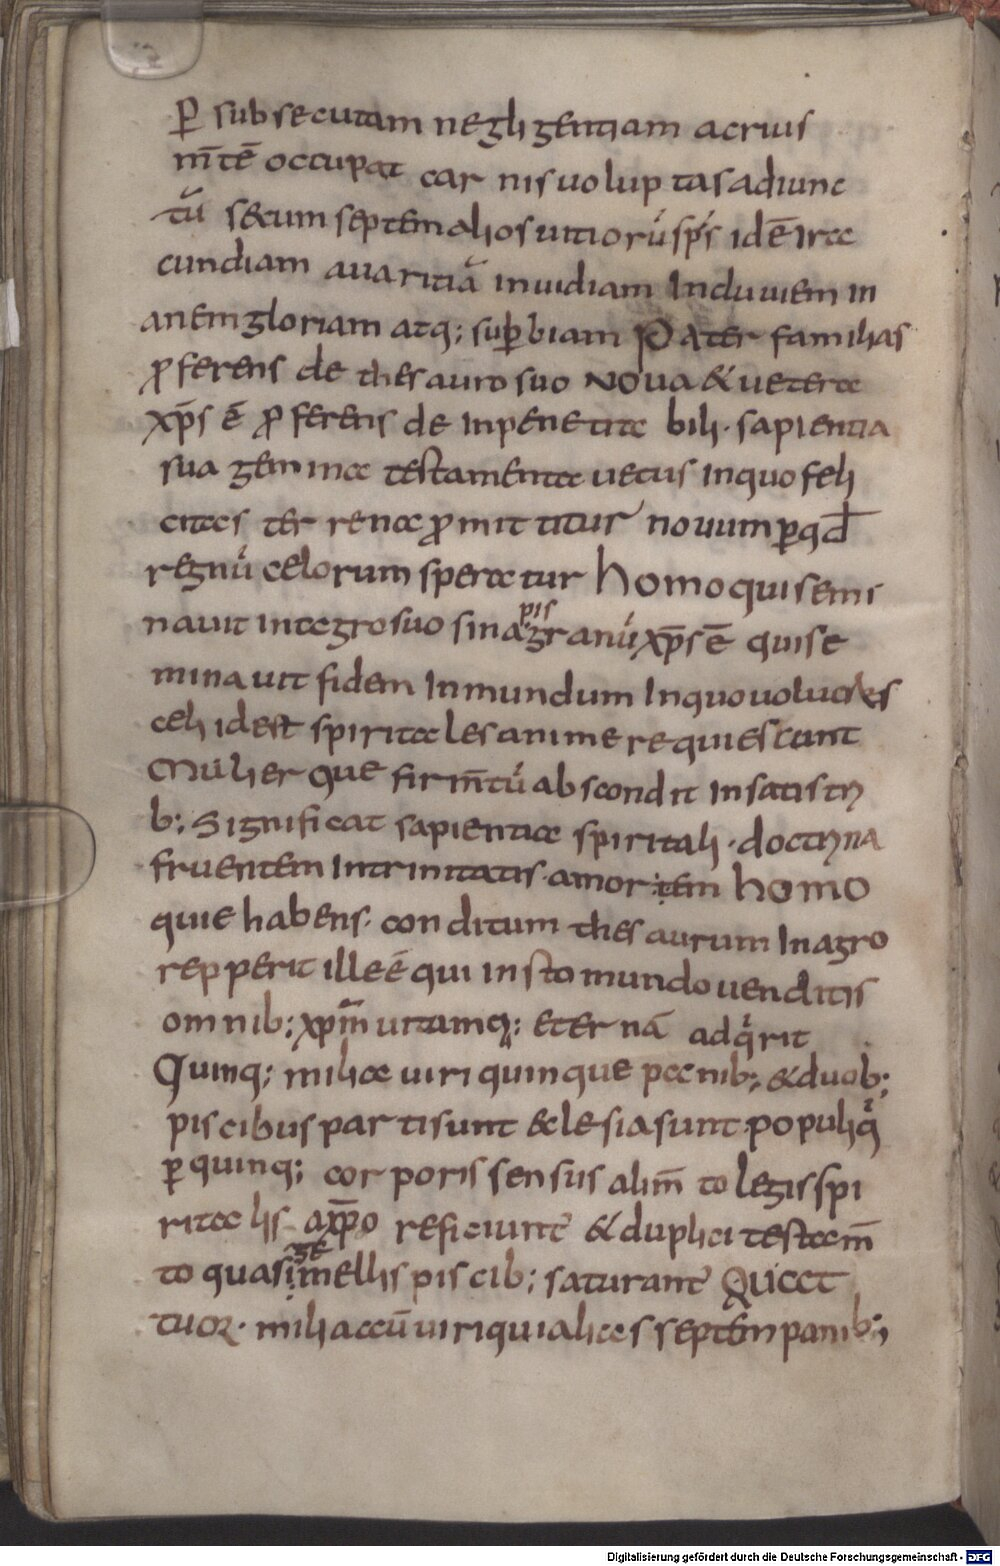 ꝑ subsecutam neglegentiam acrius
m̄tē occupat car nis uoluptas adiunc
tū secum septem alios uitiorū sp̄s idē ira
cundiam auaritiā inuidiam Induuiem in
anem gloriam atq; suꝑbiam Pater familias
ꝓferens de thesauro suo NOua & uetera
xp̄s ē ꝓferens de Inpenetra bili · sapientia
sua gemina testamenta uetus Inquo feli
citas ter rena ꝓmit titur nouum ꝑ qđ
regnū celorum speratur homo qui semi
nauit in agro suo sinapis granū xp̄s ē qui se
minauit fidem In mundum Inquo uolucres
celi id est spiritales anime requiescunt
Mulier que firm̄tū abscondit In satis tri
b; Significat sapientiae spiritali · doctrina
fruentem In trinitatis · amorem homo
qui habens · conditum thesaurum In agro
repperit ille ē qui in isto mundo uenditis
omnib; xp̄m uitamq; eternā adq̇rit
Quinq; milia uiri quinque panib; & duob;
piscibus partis sunt &clesia sunt populi q̇
ꝑ quinq; corporis sensus alim̄to legis spi
ritalis a xp̄o reficiunt̄ & duplici testam̄
to quasi gemellis piscib; saturant̄ Quat
tuor · milia cū uiri qui alias septem panib;